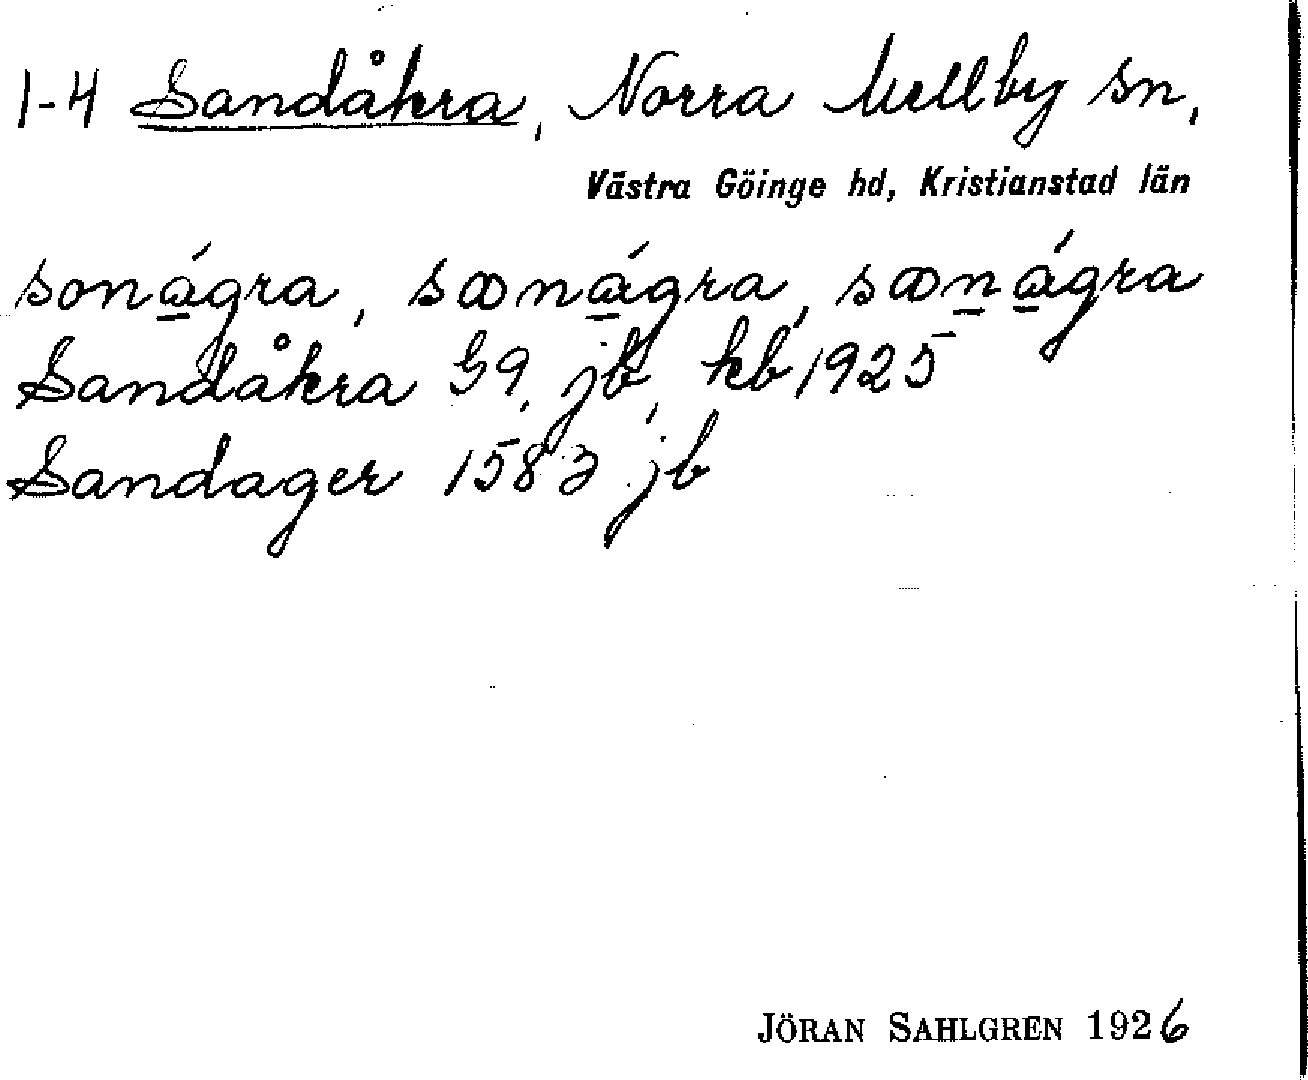 1-4 Sandåkra, Norra Mellby sn,
Västra Göinge hd, Kristianstad län
soná̱gra, sꝏná̱gra, sꝏṉá̱gra
Sandåkra G9, jb, kb 1925
Sandager 1583 jb
JÖRAN SAHLGREN 1926